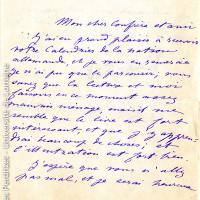 Mon cher confrère et ami
J'ai eu grand plaisir à recevoir
votre Calendrier de la nation
allemande, et je vous en remercie
je n'ai pu que le parcourir; vous
savez que la lecture et moi
faisons en ce moment assez
mauvais ménage mais il me
semble que le livre est fort
intéressant, et que j'y apprendrai
beaucoup de choses; et
l'illustration est fort bien.
J'espère que vous n'allez
pas mal, et je serai heureux